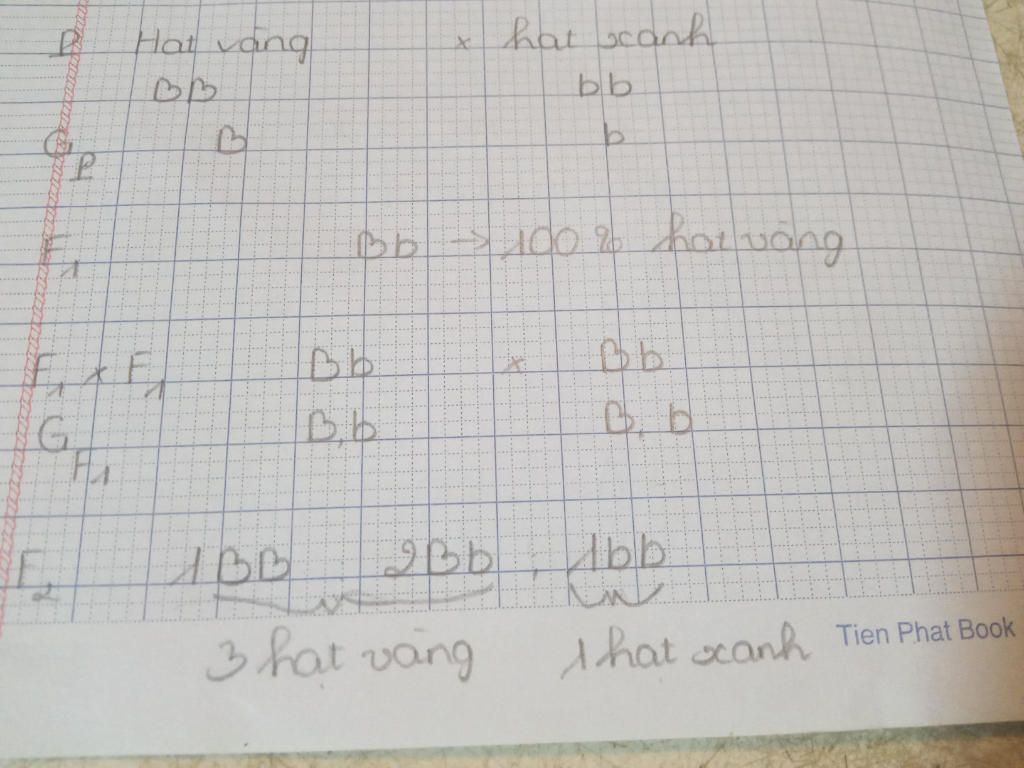 P Hạt vàng × hạt xanh
BB bb
GP B b
F1 Bb → 100% hạt vàng
F1 × F1 Bb × Bb
GF1 B,b B, b
F2 1BB 2Bb , 1bb
3 hạt vàng 1 hạt xanh
Tien Phat Book